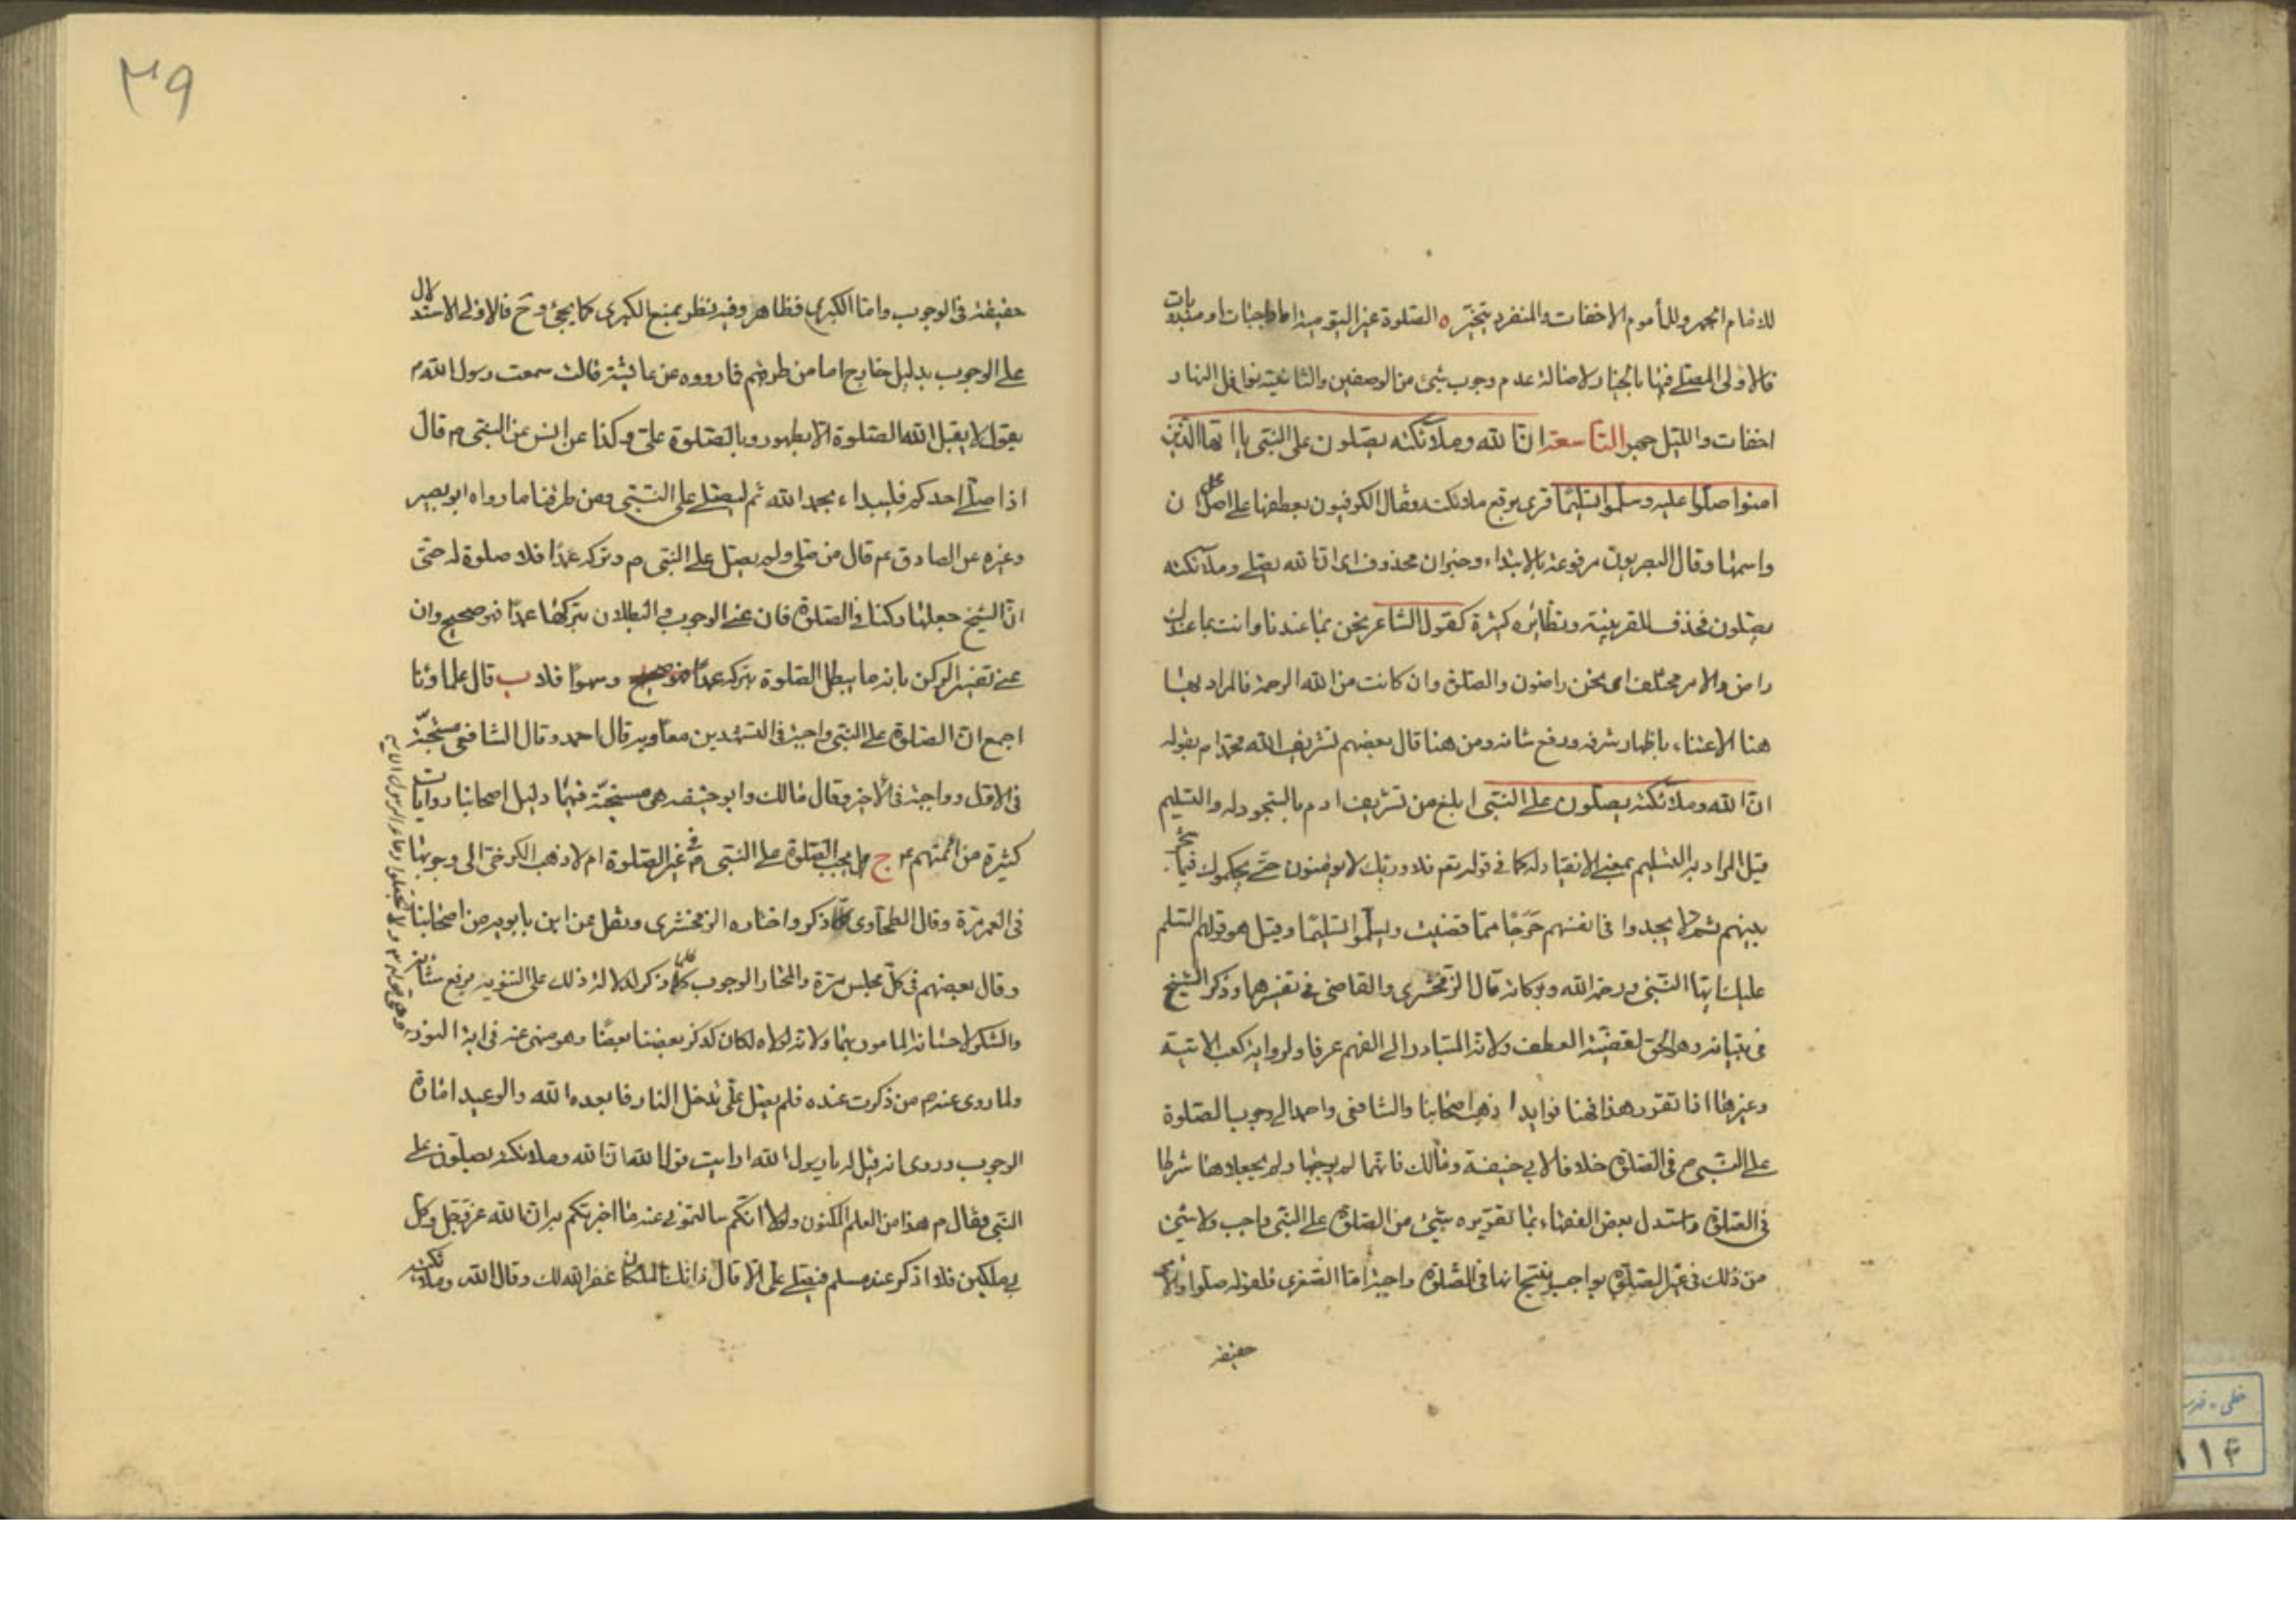 للامام الجهر وللمأموم الاخفات والمنفرد يتخير ه الصلوة غير اليومية اما واجبات او مندوبات
فالاولى المصلي فيها بالخيار لاصالة عدم وجوب شئ من الوصفين والثانية نوافل النهار
اخفات والليل جهر التاسعة ان الله وملآئكته يصلون على النبي يا ايها الذين
امنوا صلوا عليه وسلموا تسليما قرى برفع ملائكته وقال الكوفيون بعطفها على اصل ان
واسمها وقال البصريون مرفوعة بالابتداء وخبر ان محذوف اى ان الله يصلي وملآئكته
يصلون فحذف للقرينة ونظائره كثيرة كقول الشاعر نحن بما عندنا وانت بما عندك
راض والامر مختلف اى نحن راضون والصلوة وان كانت من الله الرحمة فالمراد بها
هنا الاعتناء باظهار شرفه ورفع شانه ومن هنا قال بعضهم تشريف الله محمدا م بقوله
ان الله وملآئكته يصلون على النبي ابلغ من تشريف ادم بالسجود له والتسليم
قيل المراد به التسليم بمعنى الانقياد له كما في قوله تعم فلا وربك لا يؤمنون حتى يحكموك فيما شجر
بينهم ثم لا يجدوا فى انفسهم حرجا مما قضيت ويسلموا تسليما وقيل هو قولهم السلم
عليك ايها النبي ورحمة الله وبركاته قال الزمخشرى والقاضى فى تفسيرهما وذكر الشيخ
فى تبيانه وهو الحق لقضية العطف ولانه المتبادر الى الفهم عرفا ولرواية كعب الاتية
وغيرها اذا تقرر هذا فهنا فوايد ا ذهب اصحابنا والشافعى واحمد الى وجوب الصلوة
على النبي م فى الصلوة خلافا لابي حنيفة ومالك فانهما لم يوجباها ولم يجعلاها شرطا
فى الصلوة واستدل بعض الفقهاء بما تقريره شئ من الصلوة على النبي واجب ولا شئ
من ذلك فى غير الصلوة بواجب ينتج انها فى الصلوة واجبة اما الصغرى فلقوله صلوا والامر
حقيقة
٣٩
حقيقة فى الوجوب واما الكبرى فظاهر وفيه نظر بمنع الكبرى كما يجئ وح فالاولى الاستدلال
على الوجوب بدليل خارج اما من طرقهم فما رووه عن عايشة قالت سمعت رسول الله م
يقول لا يقبل الله الصلوة الا بطهور وبالصلوة علي وكذا عن انس عن النبي م قال
اذا صلى احدكم فليبداء بحمد الله ثم ليصلي على النبي ومن طرقنا ما رواه ابو بصير
وغيره عن الصادق عم قال من صلى ولم يصل على النبي م وتركه عمدا فلا صلوة له حتى
ان الشيخ جعلها ركنا فى الصلوة فان عنى الوجوب والبطلان بتركها عمدا فهو صحيح وان
عنى تفسير الركن بانه ما يبطل الصلوة بتركه عمدا وسهوا فلا ب قال علماؤنا
اجمع ان الصلوة على النبي واجبة فى التشهدين معا وبه قال احمد وقال الشافعى مستحبة
فى الاول وواجبة فى الاخير وقال مالك وابو حنيفة هى مستحبة فيهما دليل اصحابنا روايات
كثيرة من ائمتهم ع ج هل يجب الصلوة على النبي م فى غير الصلوة ام لا ذهب الكرخى الى وجوبها
فى العمر مرة وقال الطحاوى كلما ذكر واختاره الزمخشرى ونقل عن ابن بابويه من اصحابنا
وقال بعضهم فى كل مجلس مرة والمختار الوجوب كلما ذكر لدلالة ذلك على التنويه برفع شانه
والشكر لاحسانه المأمور بهما ولانه لولاه لكان كذكر بعضنا بعضا وهو منهى عنه فى اية النور
وهى قوله ولا تجعلوا دعاء الرسول الاية
ولما روى عنه م من ذكرت عنده فلم يصل على دخل النار فابعده الله والوعيد امارة
الوجوب وروى انه قيل له يا رسول الله ارايت قول الله ان الله وملائكته يصلون على
النبي فقال م هذا من العلم المكنون ولولا انكم سالتمونى عنه ما اخبرتكم به ان الله عز وجل وكل
بي ملكين فلا اذكر عند مسلم فيصلي علي الا قال ذانك الملكان غفر الله لك وقال الله وملائكته